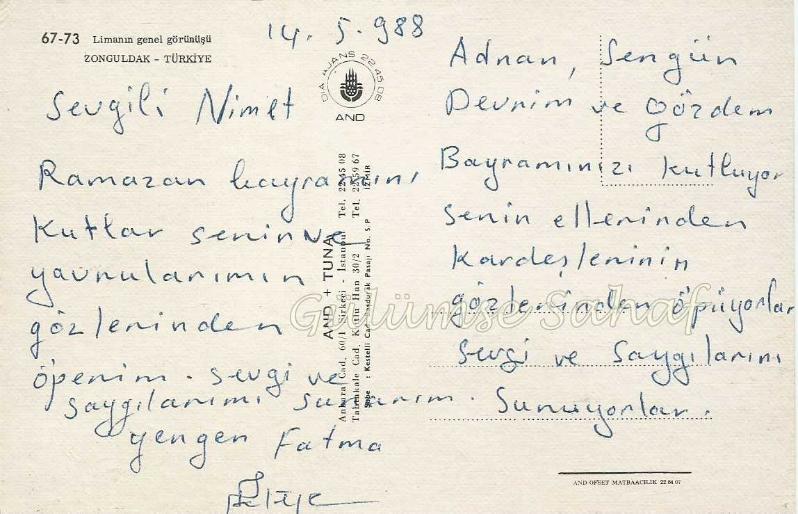 67-73 Limanın genel görünüşü
ZONGULDAK - TÜRKİYE
14.5.988
DİA AJANS 22 45 08
AND
Sevgili Nimet
Ramazan bayramını
Kutlar senin ve
yavrularımın
gözlerinden
öperim. Sevgi ve
saygılarımı sunarım.
yengen Fatma
AND + TUNA
Ankara Cad. 60/1 Sirkeci - İstanbul Tel. 22 45 08
Tahtakale Cad. Kutlu Han 30/2 Tel. 22 59 67
Şube : Kestelli Cad. Pasajı No. 5.P İZMİR
Adnan, Sengün
Devrim ve Gözdem
Bayramınızı kutluyor
senin ellerinden
kardeşlerinin
gözlerinden öpüyorlar
sevgi ve saygılarını
Sunuyorlar.
Gülümse Sahaf
AND OFSET MATBAACILIK 22 64 07